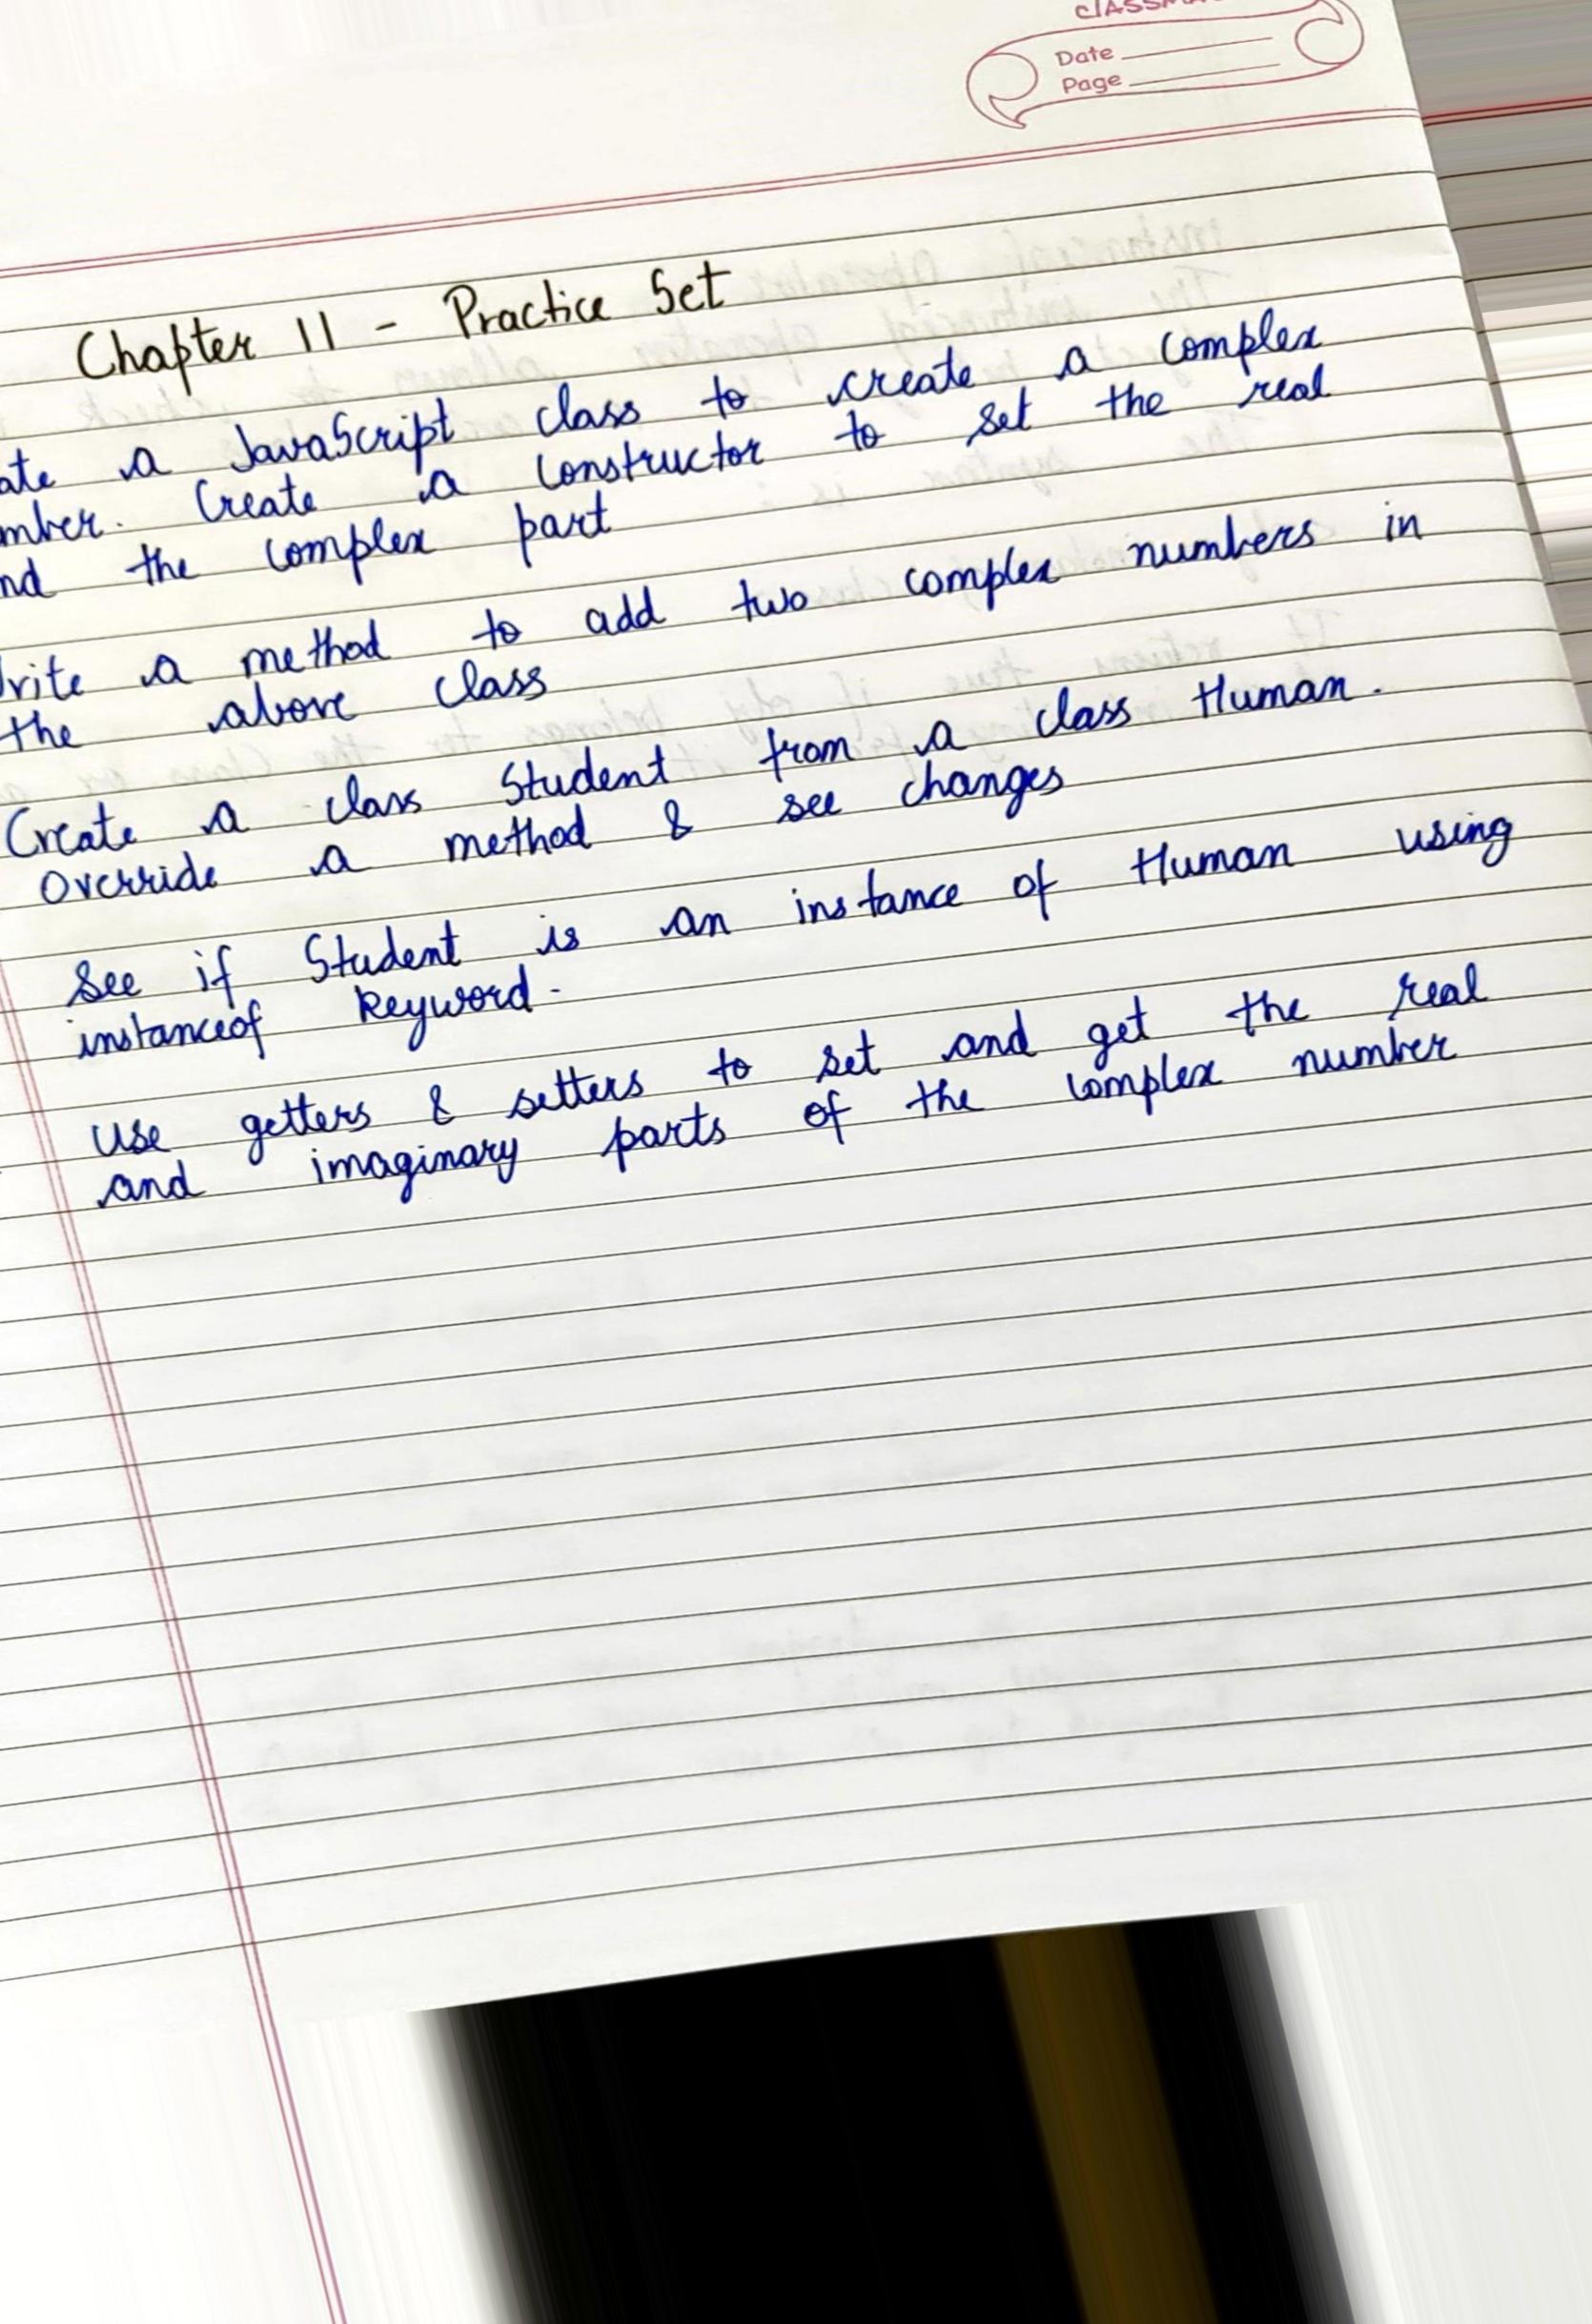 Date
Page
Chapter 11 - Practice Set
a JavaScript class to create a complex
Create a constructor to set the real
the complex part
a method to add two complex numbers in
the above class
Create a class Student from a class Human.
Override a method & see changes
See if Student is an instance of Human using
instanceof keyword.
Use getters & setters to set and get the real
and imaginary parts of the complex number